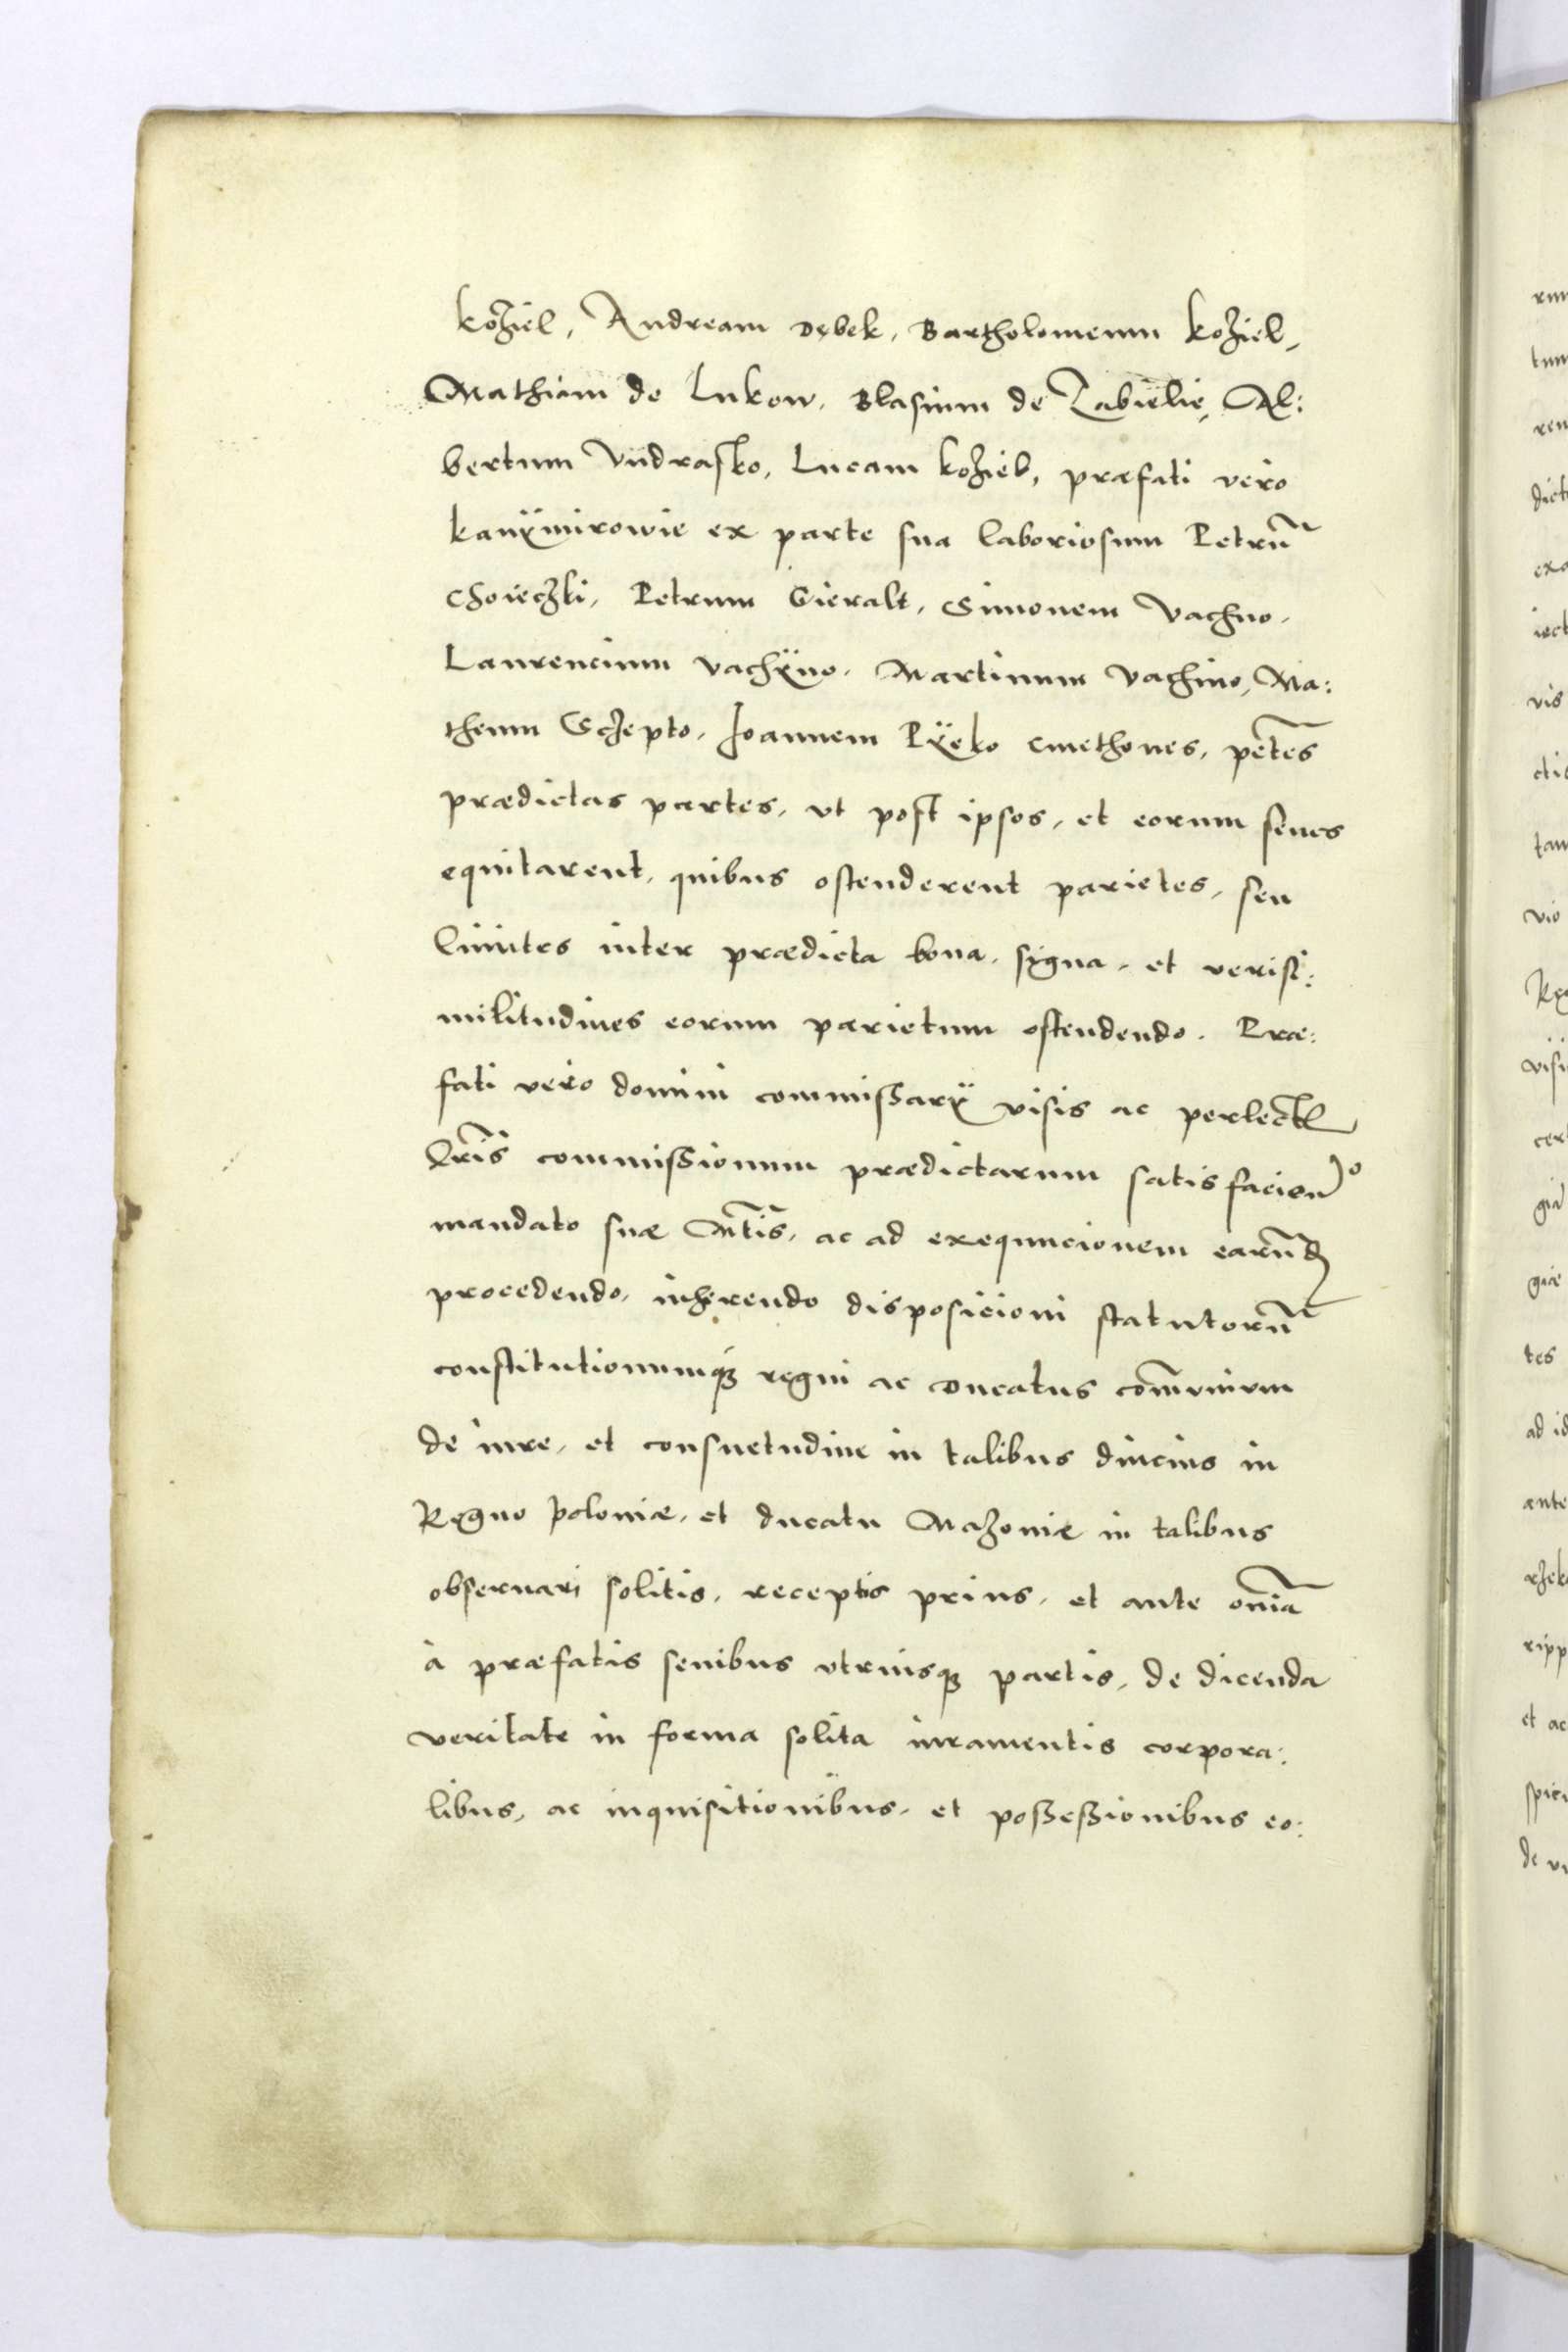 koziel, Andream Dębek, Bartholomeum koziel,
Mathiam de Lukow, Blasium de Zabielie, Al:
bertum Vndrasko, Lucam koziel, præfati vero
kanÿmirowie ex parte sua laboriosum Petrũ
Choieczki, Petrum Gieralt, Simonem Vachno,
Laurencium Vachÿno, Martinum Vachino, Ma:
theum Sczepto, Joannem Pÿeko Cmethones, pẽtes
prædictas partes, vt post ipsos, et eorum senes
equitarent, quibus ostenderent parietes, seu
limites inter prædicta bona, signa, et verisi:
militudines eorum parietum ostendendo. Præ:
fati vero domini commissarÿ visis ac perlect
lr̃is commissionum prædictarum satisfacienᵒ
mandato suæ Mt̃is, ac ad exequucionem earũd
procedendo, inherendo disposicioni statutorũ
constitutionumq₃ regni ac Ducatus com̃unium
de iure, et consuetudine in talibus diucius in
Regno poloniæ, et ducatu Mazoniæ in talibus
obseruari solitis, receptis prius, et ante om̃ia
à præfatis senibus vtriusq₃ partis, de dicenda
veritate in forma solita iuramentis corpora:
libus, ac inquisitionibus, et possessionibus eo: